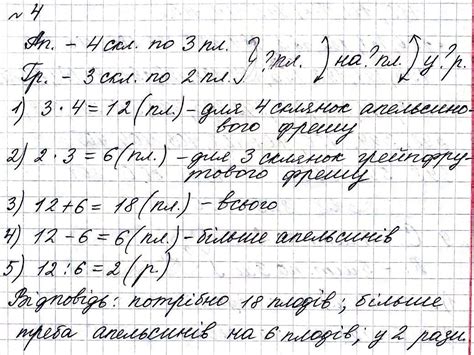 № 4
Ап. - 4 скл. по 3 пл. } ? пл. ) на ? пл. ) у ? р.
Гр. - 3 скл. по 2 пл.
1) 3 · 4 = 12 (пл.) - для 4 склянок апельсино-
вого фрешу
2) 2 · 3 = 6 (пл.) - для 3 склянок грейпфру-
тового фрешу
3) 12 + 6 = 18 (пл.) - всього
4) 12 - 6 = 6 (пл.) - більше апельсинів
5) 12 : 6 = 2 (р.)
Відповідь: потрібно 18 плодів; більше
треба апельсинів на 6 плодів; у 2 рази.